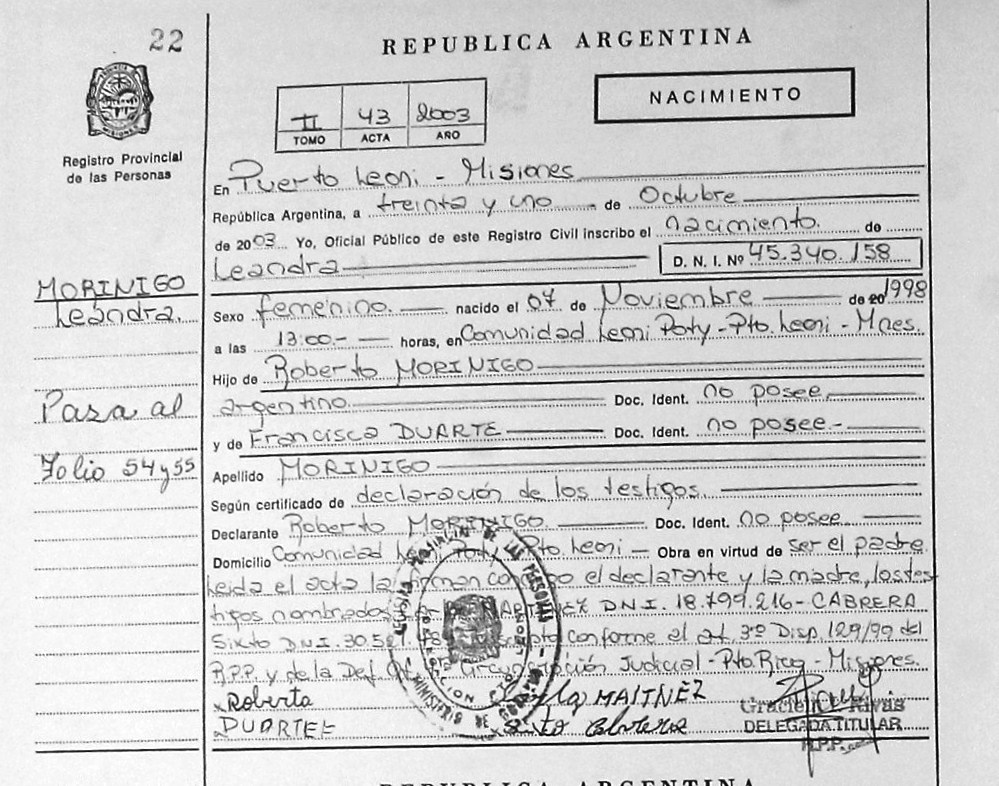 22
REPUBLICA ARGENTINA
NACIMIENTO
II 43 2003
TOMO ACTA AÑO
Registro Provincial
de las Personas
En Puerto Leoni - Misiones
República Argentina, a treinta y uno de Octubre
de 2003 Yo, Oficial Público de este Registro Civil inscribo el nacimiento. de
Leandra D. N. I. Nº 45.340.158
MORINIGO
Leandra.
Sexo femenino. nacido el 07 de Noviembre de 20 1998
a las 13:00.- horas, en Comunidad Leoni Poty - Pto. Leoni - Mnes.
Hijo de Roberto MORINIGO
Pasa al
argentino. Doc. Ident. no posee.
y de Francisca DUARTE Doc. Ident. no posee.-
Folio 54 y 55
Apellido MORINIGO
Según certificado de declaración de los testigos.
Declarante Roberto MORINIGO. Doc. Ident. no posee
Domicilio Comunidad Leoni Poty Pto. Leoni - Obra en virtud de ser el padre
Leida el acta la firman conmigo el declarante y la madre, los tes
tigos nombrados DNI. 18.799.216 - CABRERA
Sixto D.N.I. 30.5 conforme el at. 3º Disp. 129/99 del
R.P.P. y de la Def. Circunscripción Judicial - Pto. Rico - Misiones.
x Roberto
DUARTE
MAITNEZ
Sixto
DELEGADA TITULAR
R.P.P.
REPUBLICA ARGENTINA